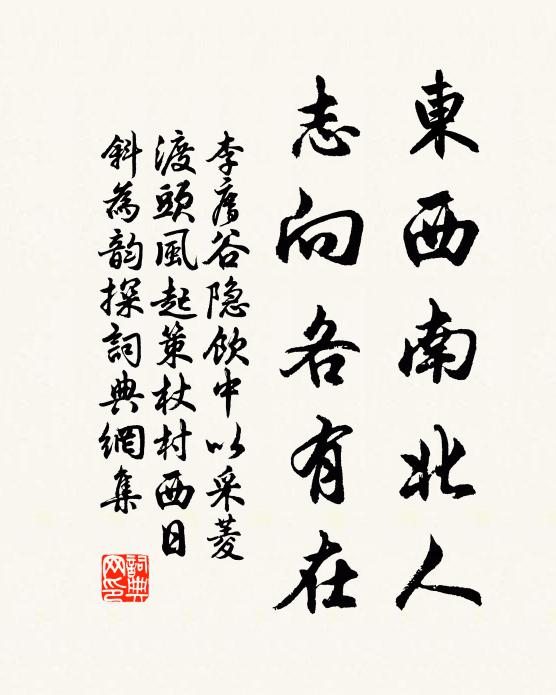 東西南北人
志向各有在
李唐谷隐飲中以采菱
渡頭風起策杖村西日
斜為韵探詞典網集
詞典网印